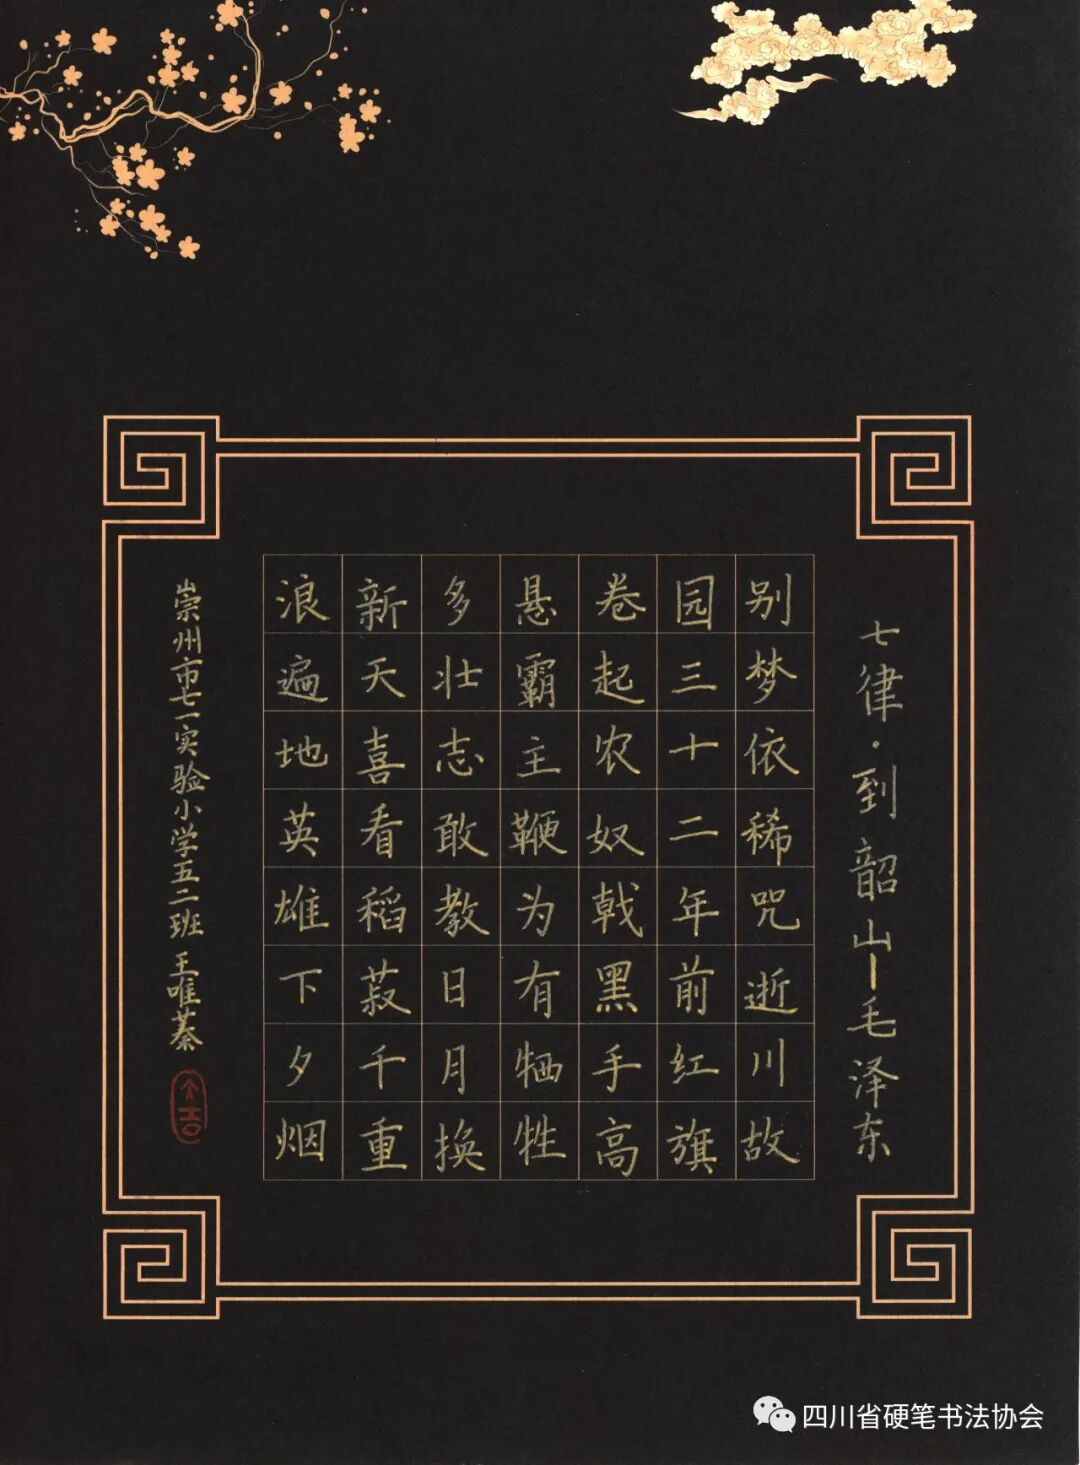 七律·到韶山—毛泽东
别梦依稀咒逝川故
园三十二年前红旗
卷起农奴戟黑手高
悬霸主鞭为有牺牲
多壮志敢教日月换
新天喜看稻菽千重
浪遍地英雄下夕烟
崇州市七一实验小学五二班 王唯蓁
四川省硬笔书法协会